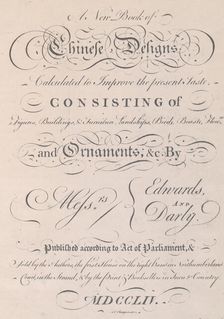 A New Book of
Chinese Designs
Calculated to Improve the present Taste
CONSISTING of
Figures, Buildings, & Furniture, Landskips, Birds, Beasts, Flowrs.
and Ornaments, &c. By
Messrs.
Edwards,
AND
Darly.
Published according to Act of Parliament, &
Sold by the Authors, the first House on the right Hand in Northumberland
Court, in the Strand, & by the Print & Booksellers in Town & Country.
MDCCLIV.